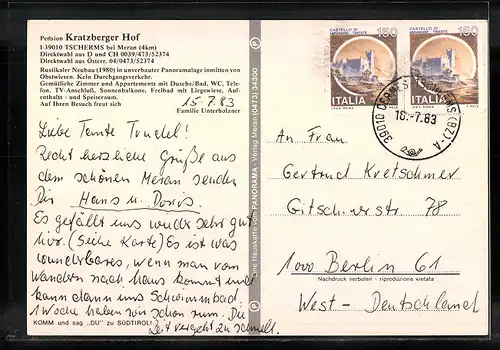 Pension Kratzberger Hof
I-39010 TSCHERMS bei Meran (4km)
Direktwahl aus D und CH 0039/473/52374
Direktwahl aus Österr. 04/0473/52374
Rustikaler Neubau (1980) in unverbauter Panoramalage inmitten von
Obstwiesen. Kein Durchgangsverkehr.
Gemütliche Zimmer und Appartements mit Dusche/Bad, WC, Tele-
fon, TV-Anschluß, Sonnenbalkone. Freibad mit Liegewiese, Auf-
enthalts- und Speiseraum.
Auf Ihren Besuch freut sich
Familie Unterholzner
15.7.83
Liebe Tante Trudel!
Recht herzliche Grüße aus
dem schönen Meran senden
Dir Hans u. Doris.
Es gefällt uns wunder sehr gut
hier. (Siehe Karte) Es ist was
wunderbares, wenn man vom
Wandern nach haus kommt und
kann dann ins Schwimmbad
1 Woche haben wir schon rum. Die
Zeit vergeht zu schnell.
KOMM und sag "DU" zu SÜDTIROL!
Eine Hauskarte vom PANORAMA - Verlag Meran (0473) 34300
CASTELLO DI MIRAMARE - TRIESTE 150
ITALIA
CASTELLO DI MIRAMARE - TRIESTE 150
ITALIA
39010 CERMES (BZ) - A
16.-7.83
An Frau
Gertrud Kretschmer
Gitschinerstr. 78
1000 Berlin 61
Nachdruck verboten - riproduzione vietata
West-Deutschland